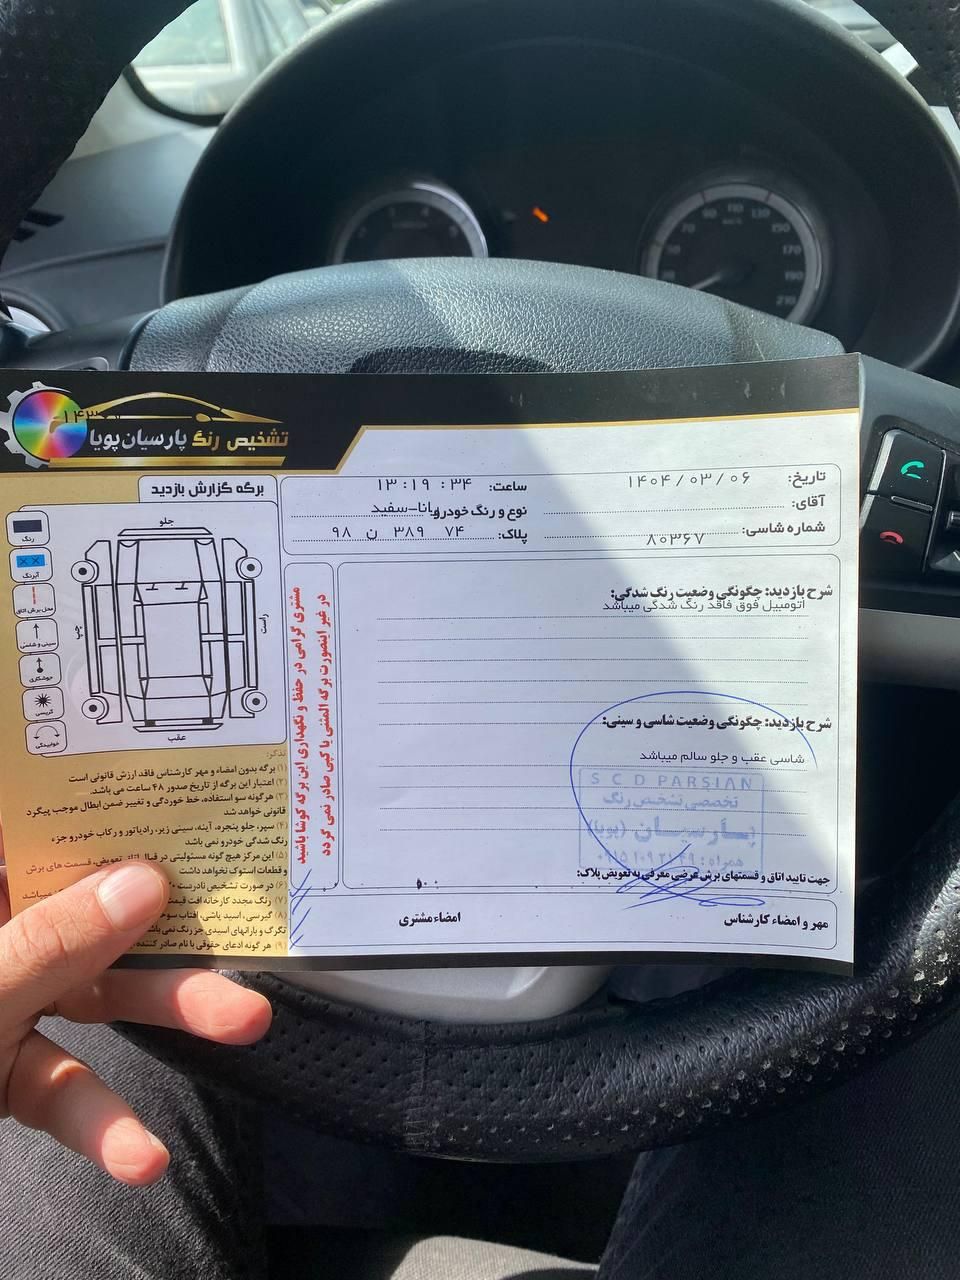 تشخیص رنگ پارسیان پویا
برگه گزارش بازدید
تاریخ: ۱۴۰۴/۰۳/۰۶
ساعت: ۱۳:۱۹:۳۴
آقای:
نوع و رنگ خودرو: انا-سفید
شماره شاسی: ۸۰۳۶۷
پلاک: ۷۴ ۳۸۹ ن ۹۸
جلو
راست
چپ
عقب
رنگ
آبرنگ
محل برش اتاق
سینی و شاسی
جوشکاری
گریسی
خوابیدگی
مشتری گرامی در حفظ و نگهداری این برگه کوشا باشید
در غیر اینصورت برگه المثنی یا کپی صادر نمی گردد
شرح بازدید: چگونگی وضعیت رنگ شدگی:
اتومبیل فوق فاقد رنگ شدگی میباشد
شرح بازدید: چگونگی وضعیت شاسی و سینی:
شاسی عقب و جلو سالم میباشد
SCD PARSIAN
تخصصی تشخیص رنگ
پارسیان (پویا)
همراه:
جهت تایید اتاق و قسمتهای برش عرضی معرفی به تعویض پلاک:
مهر و امضاء کارشناس
امضاء مشتری
تذکر:
۱) برگه بدون امضاء و مهر کارشناس فاقد ارزش قانونی است
۲) اعتبار این برگه از تاریخ صدور ۴۸ ساعت می باشد.
۳) هرگونه سو استفاده، خط خوردگی و تغییر ضمن ابطال موجب پیگرد
قانونی خواهد شد
۴) سپر، جلو پنجره، آینه، سینی زیر، رادیاتور و رکاب خودرو جزء
رنگ شدگی خودرو نمی باشد
۵) این مرکز هیچ گونه مسئولیتی در قبال اتاق تعویض، قسمت های برش
و قطعات استوک نخواهد داشت
۶) در صورت تشخیص نادرست
۷) رنگ مجدد کارخانه افت قیمت
۸) گیرسی، اسید پاشی، آفتاب
تگرگ و بارانهای اسیدی جز رنگ نمی باشد
۹) هر گونه ادعای حقوقی با نام صادر کننده